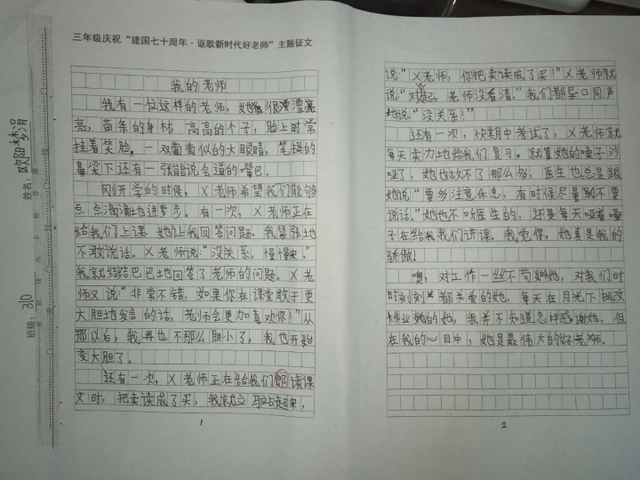 三年级庆祝“建国七十周年·讴歌新时代好老师”主题征文
姓名：欧阳梦涓
班级：310
我的老师
我有一位这样的老师，她很漂漂亮
亮，苗条的身材 高高的个子，脸上时常
挂着笑脸，一双葡萄似的大眼睛，笔挺的
鼻梁下还有一张能说会道的嘴巴。
刚开学的时候，X老师希望我们能够
点点滴滴地进步。有一次，X老师正在
给我们上课，她让我回答问题，我紧张地
不敢说话。X老师说：“没关系，慢慢来。”
我就结结巴巴地回答了老师的问题，X老
师又说“非常不错，如果你在课堂敢于更
大胆地发言的话，老师会更加喜欢你！”从
那以后，我再也不那么胆小了，我也开始
变大胆了。
还有一次，X老师正在给我们朗读课
文时，把卖读成了买，我就立马站起来，
1
说：“X老师，你把卖读成了买！”X老师就
说“对不起，老师没看清。”我们都异口同声
说“没关系！”
还有一次，快期中考试了，X老师就
每天卖力地给我们复习。就算她的嗓子沙
哑了，她也改不了那么多，医生也总是跟
她说：“要多注意休息，有时候尽量不要
说话。”她也不听医生的，还是每天哑着嗓
子在给我们讲课。我觉得，她真是我的
骄傲！
噢，对工作一丝不苟的她，对我们时
时刻刻都关爱的她，每天在月光下批改
作业的她，我并不知道怎样感谢她，但
在我的心目中，她是最伟大的好老师。
2